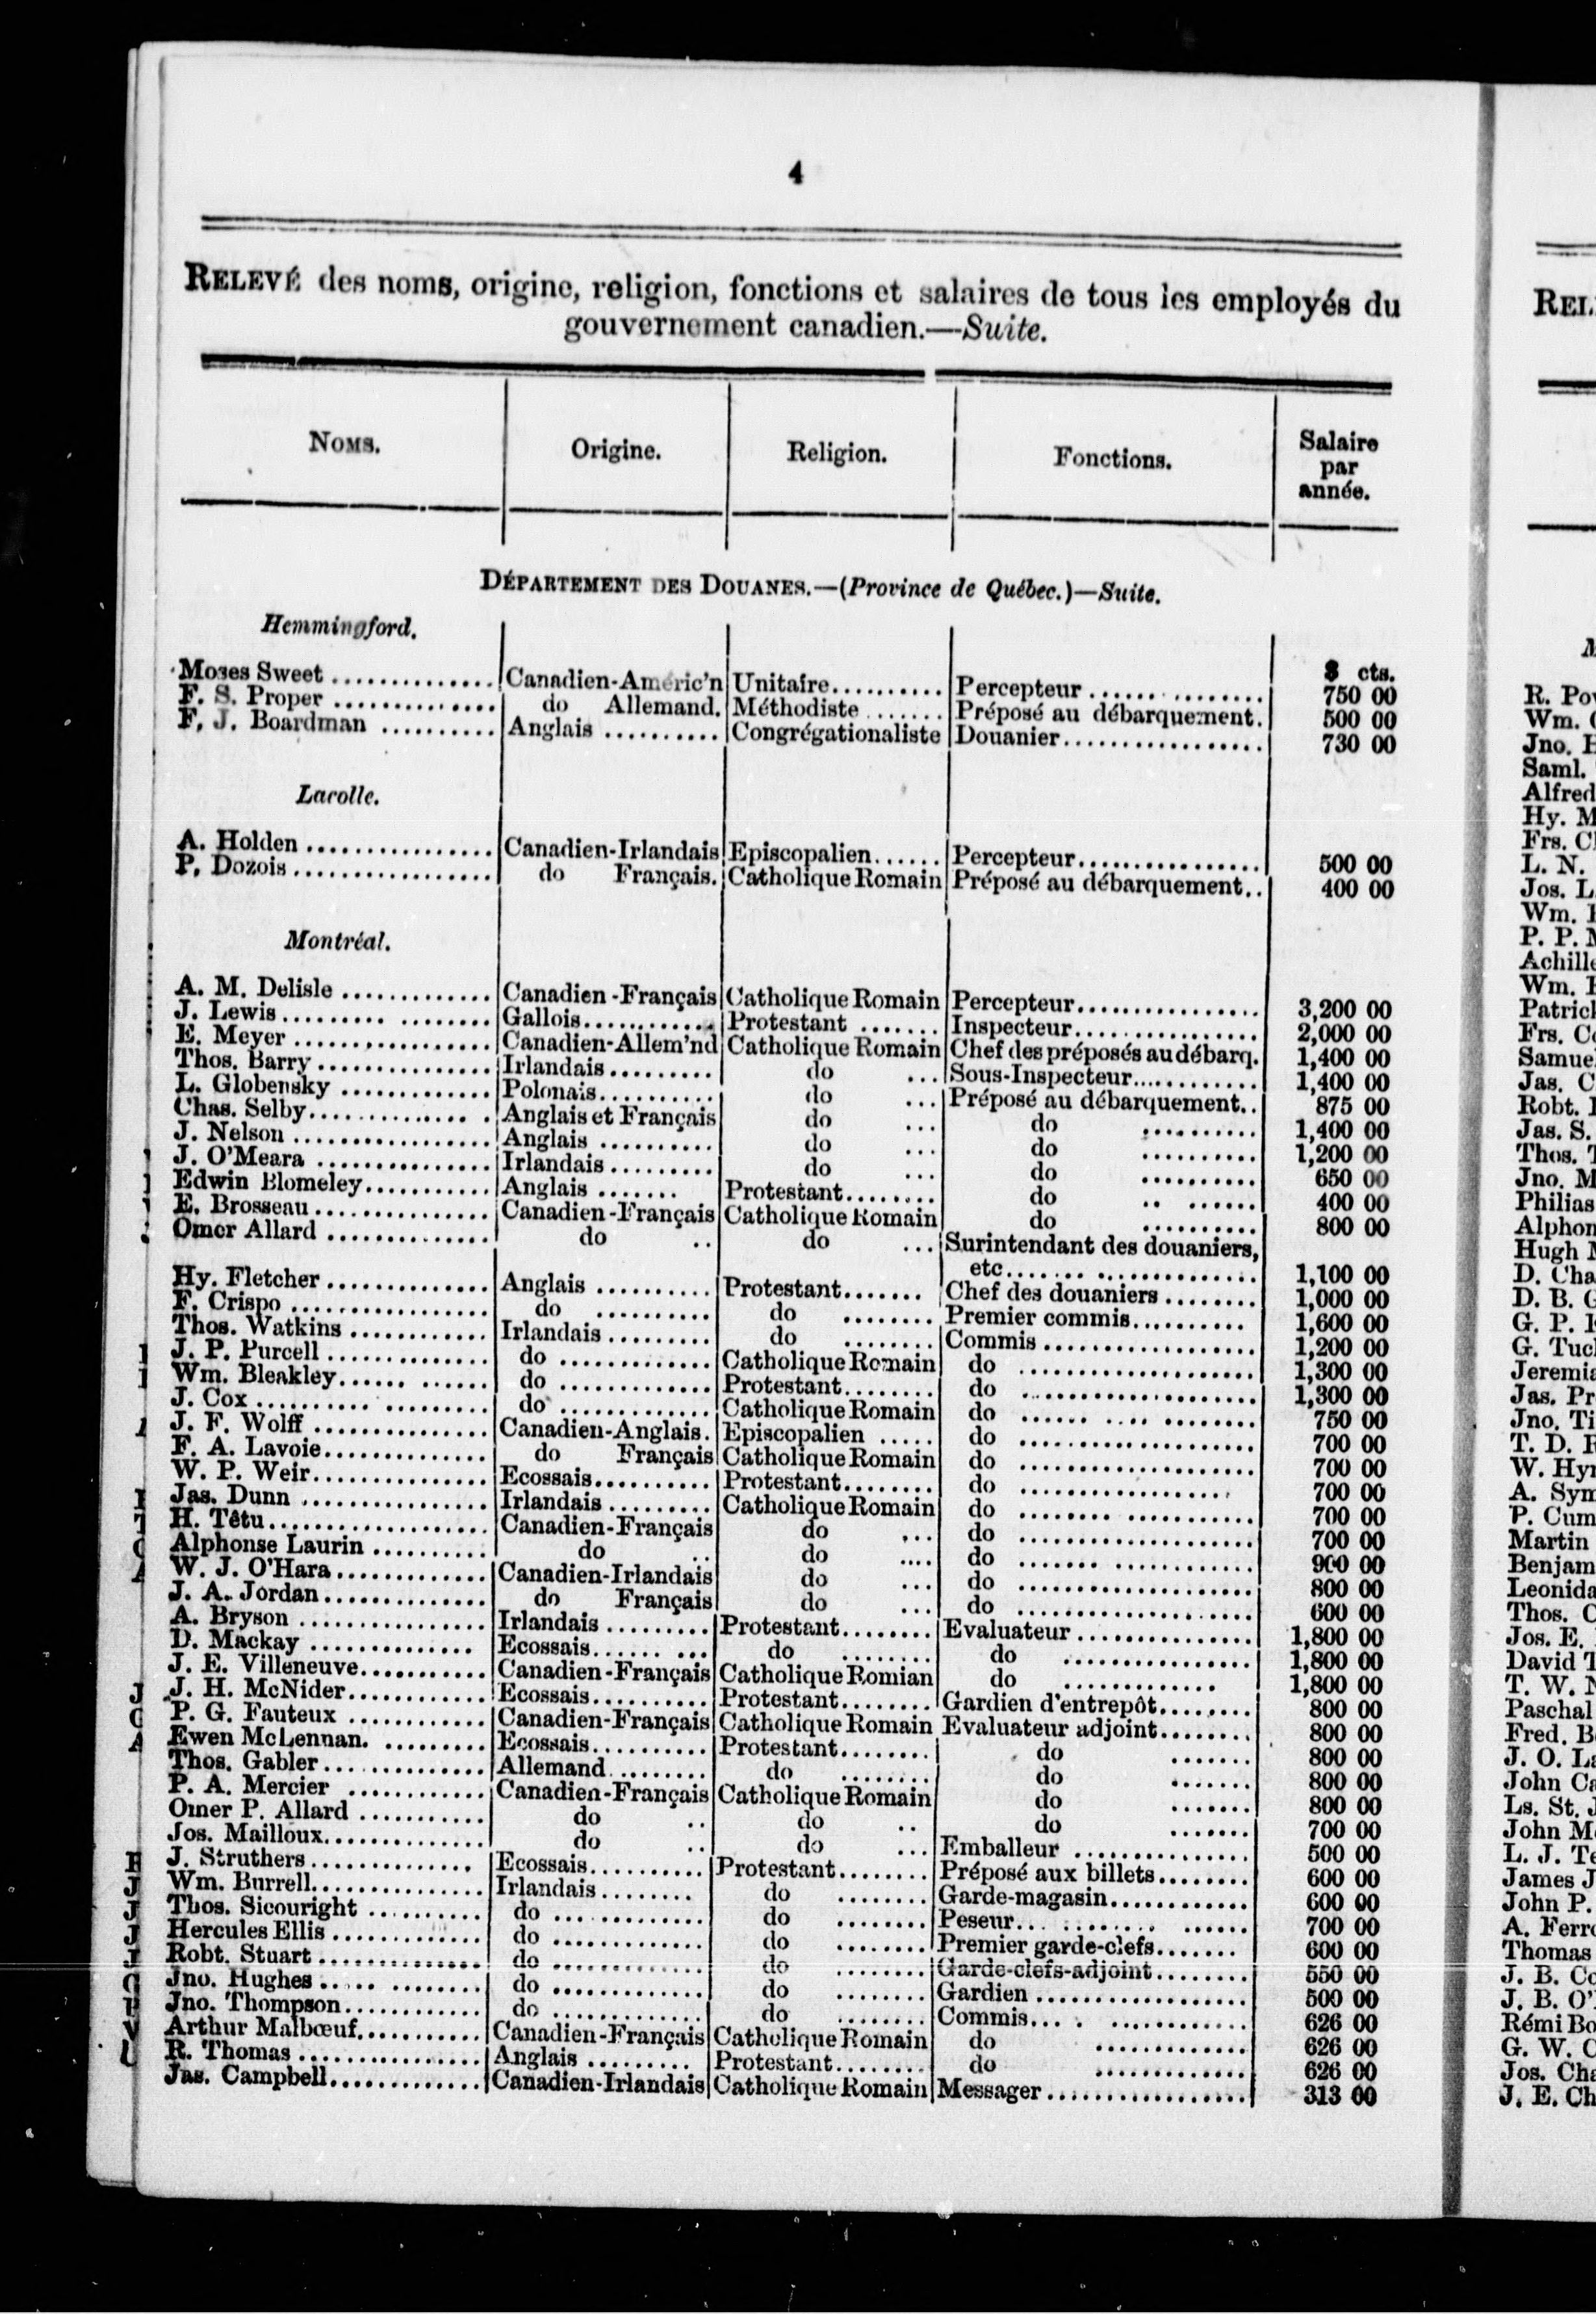 4
RELEVÉ des noms, origine, religion, fonctions et salaires de tous les employés du
gouvernement canadien.—Suite.
NOMS. Origine. Religion. Fonctions. Salaire par année.
DÉPARTEMENT DES DOUANES.—(Province de Québec.)—Suite.
Hemmingford.
$ cts.
Moses Sweet .............. Canadien-Améric'n Unitaire.......... Percepteur ................ 750 00
F. S. Proper .............. do Allemand. Méthodiste ....... Préposé au débarquement. 500 00
F. J. Boardman .......... Anglais .......... Congrégationaliste Douanier................. 730 00
Lacolle.
A. Holden ................ Canadien-Irlandais Episcopalien...... Percepteur................ 500 00
P. Dozois ................. do Français. Catholique Romain Préposé au débarquement.. 400 00
Montréal.
A. M. Delisle ............. Canadien-Français Catholique Romain Percepteur................ 3,200 00
J. Lewis......... ........ Gallois............ Protestant ....... Inspecteur................ 2,000 00
E. Meyer ................. Canadien-Allem'nd Catholique Romain Chef des préposés au débarq. 1,400 00
Thos. Barry ............... Irlandais ......... do ... Sous-Inspecteur............ 1,400 00
L. Globensky ............. Polonais.......... do ... Préposé au débarquement.. 875 00
Chas. Selby.............. . Anglais et Français do ... do .......... 1,400 00
J. Nelson ................. Anglais .......... do ... do .......... 1,200 00
J. O'Meara ............... Irlandais ......... do ... do .......... 650 00
Edwin Blomeley........... Anglais ....... Protestant........ do .. ...... 400 00
E. Brosseau ............... Canadien-Français Catholique Romain do .......... 800 00
Omer Allard .............. do .. do ... Surintendant des douaniers,
etc....... .............. 1,100 00
Hy. Fletcher .............. Anglais .......... Protestant....... Chef des douaniers ........ 1,000 00
F. Crispo ................. do .......... do ........ Premier commis.......... 1,600 00
Thos. Watkins ............ Irlandais ......... do ........ Commis ................... 1,200 00
J. P. Purcell .............. do .............. Catholique Romain do ..................... 1,300 00
Wm. Bleakley...... ...... do .............. Protestant........ do ..................... 1,300 00
J. Cox .......... ......... do .............. Catholique Romain do ...... .... ........ 750 00
J. F. Wolff ................ Canadien-Anglais. Episcopalien ..... do ..................... 700 00
F. A. Lavoie............... do Français Catholique Romain do ..................... 700 00
W. P. Weir................ Ecossais.......... Protestant........ do ................... 700 00
Jas. Dunn ................. Irlandais ......... Catholique Romain do ........ ............ 700 00
H. Têtu.................... Canadien-Français do ... do ..................... 700 00
Alphonse Laurin .......... do .. do .... do ....... ............ 900 00
W. J. O'Hara.............. Canadien-Irlandais do ... do ..................... 800 00
J. A. Jordan............... do Français do ... do ..................... 600 00
A. Bryson ................. Irlandais ......... Protestant........ Evaluateur ................ 1,800 00
D. Mackay ............... Ecossais...... ... do ........ do ................. 1,800 00
J. E. Villeneuve............ Canadien-Français Catholique Romian do .............. 1,800 00
J. H. McNider............. Ecossais.......... Protestant........ Gardien d'entrepôt......... 800 00
P. G. Fauteux ............ Canadien-Français Catholique Romain Evaluateur adjoint........ 800 00
Ewen McLennan. ......... Ecossais.......... Protestant........ do ....... 800 00
Thos. Gabler............... Allemand......... do ........ do ....... 800 00
P. A. Mercier ............ Canadien-Français Catholique Romain do ....... 800 00
Omer P. Allard ........... do .. do .. do ....... 700 00
Jos. Mailloux............... do .. do ... Emballeur ................ 500 00
J. Struthers............... Ecossais.......... Protestant........ Préposé aux billets........ 600 00
Wm. Burrell................ Irlandais ........ do ........ Garde-magasin............ 600 00
Thos. Sicouright .......... do .............. do ........ Peseur... ......... ...... 700 00
Hercules Ellis ............. do .............. do ........ Premier garde-clefs....... 600 00
Robt. Stuart ............... do .............. do ........ Garde-clefs-adjoint........ 550 00
Jno. Hughes ..... ........ do .............. do ........ Gardien ................... 500 00
Jno. Thompson............. do .............. do ........ Commis... . ............ 626 00
Arthur Malbœuf........... Canadien-Français Catholique Romain do .............. 626 00
R. Thomas ................. Anglais .......... Protestant........ do .............. 626 00
Jas. Campbell.............. Canadien-Irlandais Catholique Romain Messager .................. 313 00